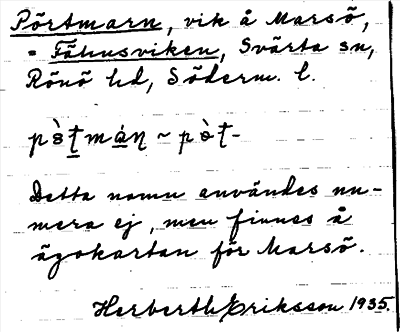 Pörtmarn, vik å Marsö,
= Fähusviken, Svärta sn,
Rönö hd, Söderm. l.
pò̀ṯmá̱ṇ ~ pò̀ṯ-
Detta namn användes nu-
mera ej, men finnes å
ägokartan för Marsö.
Herberth Eriksson 1935.